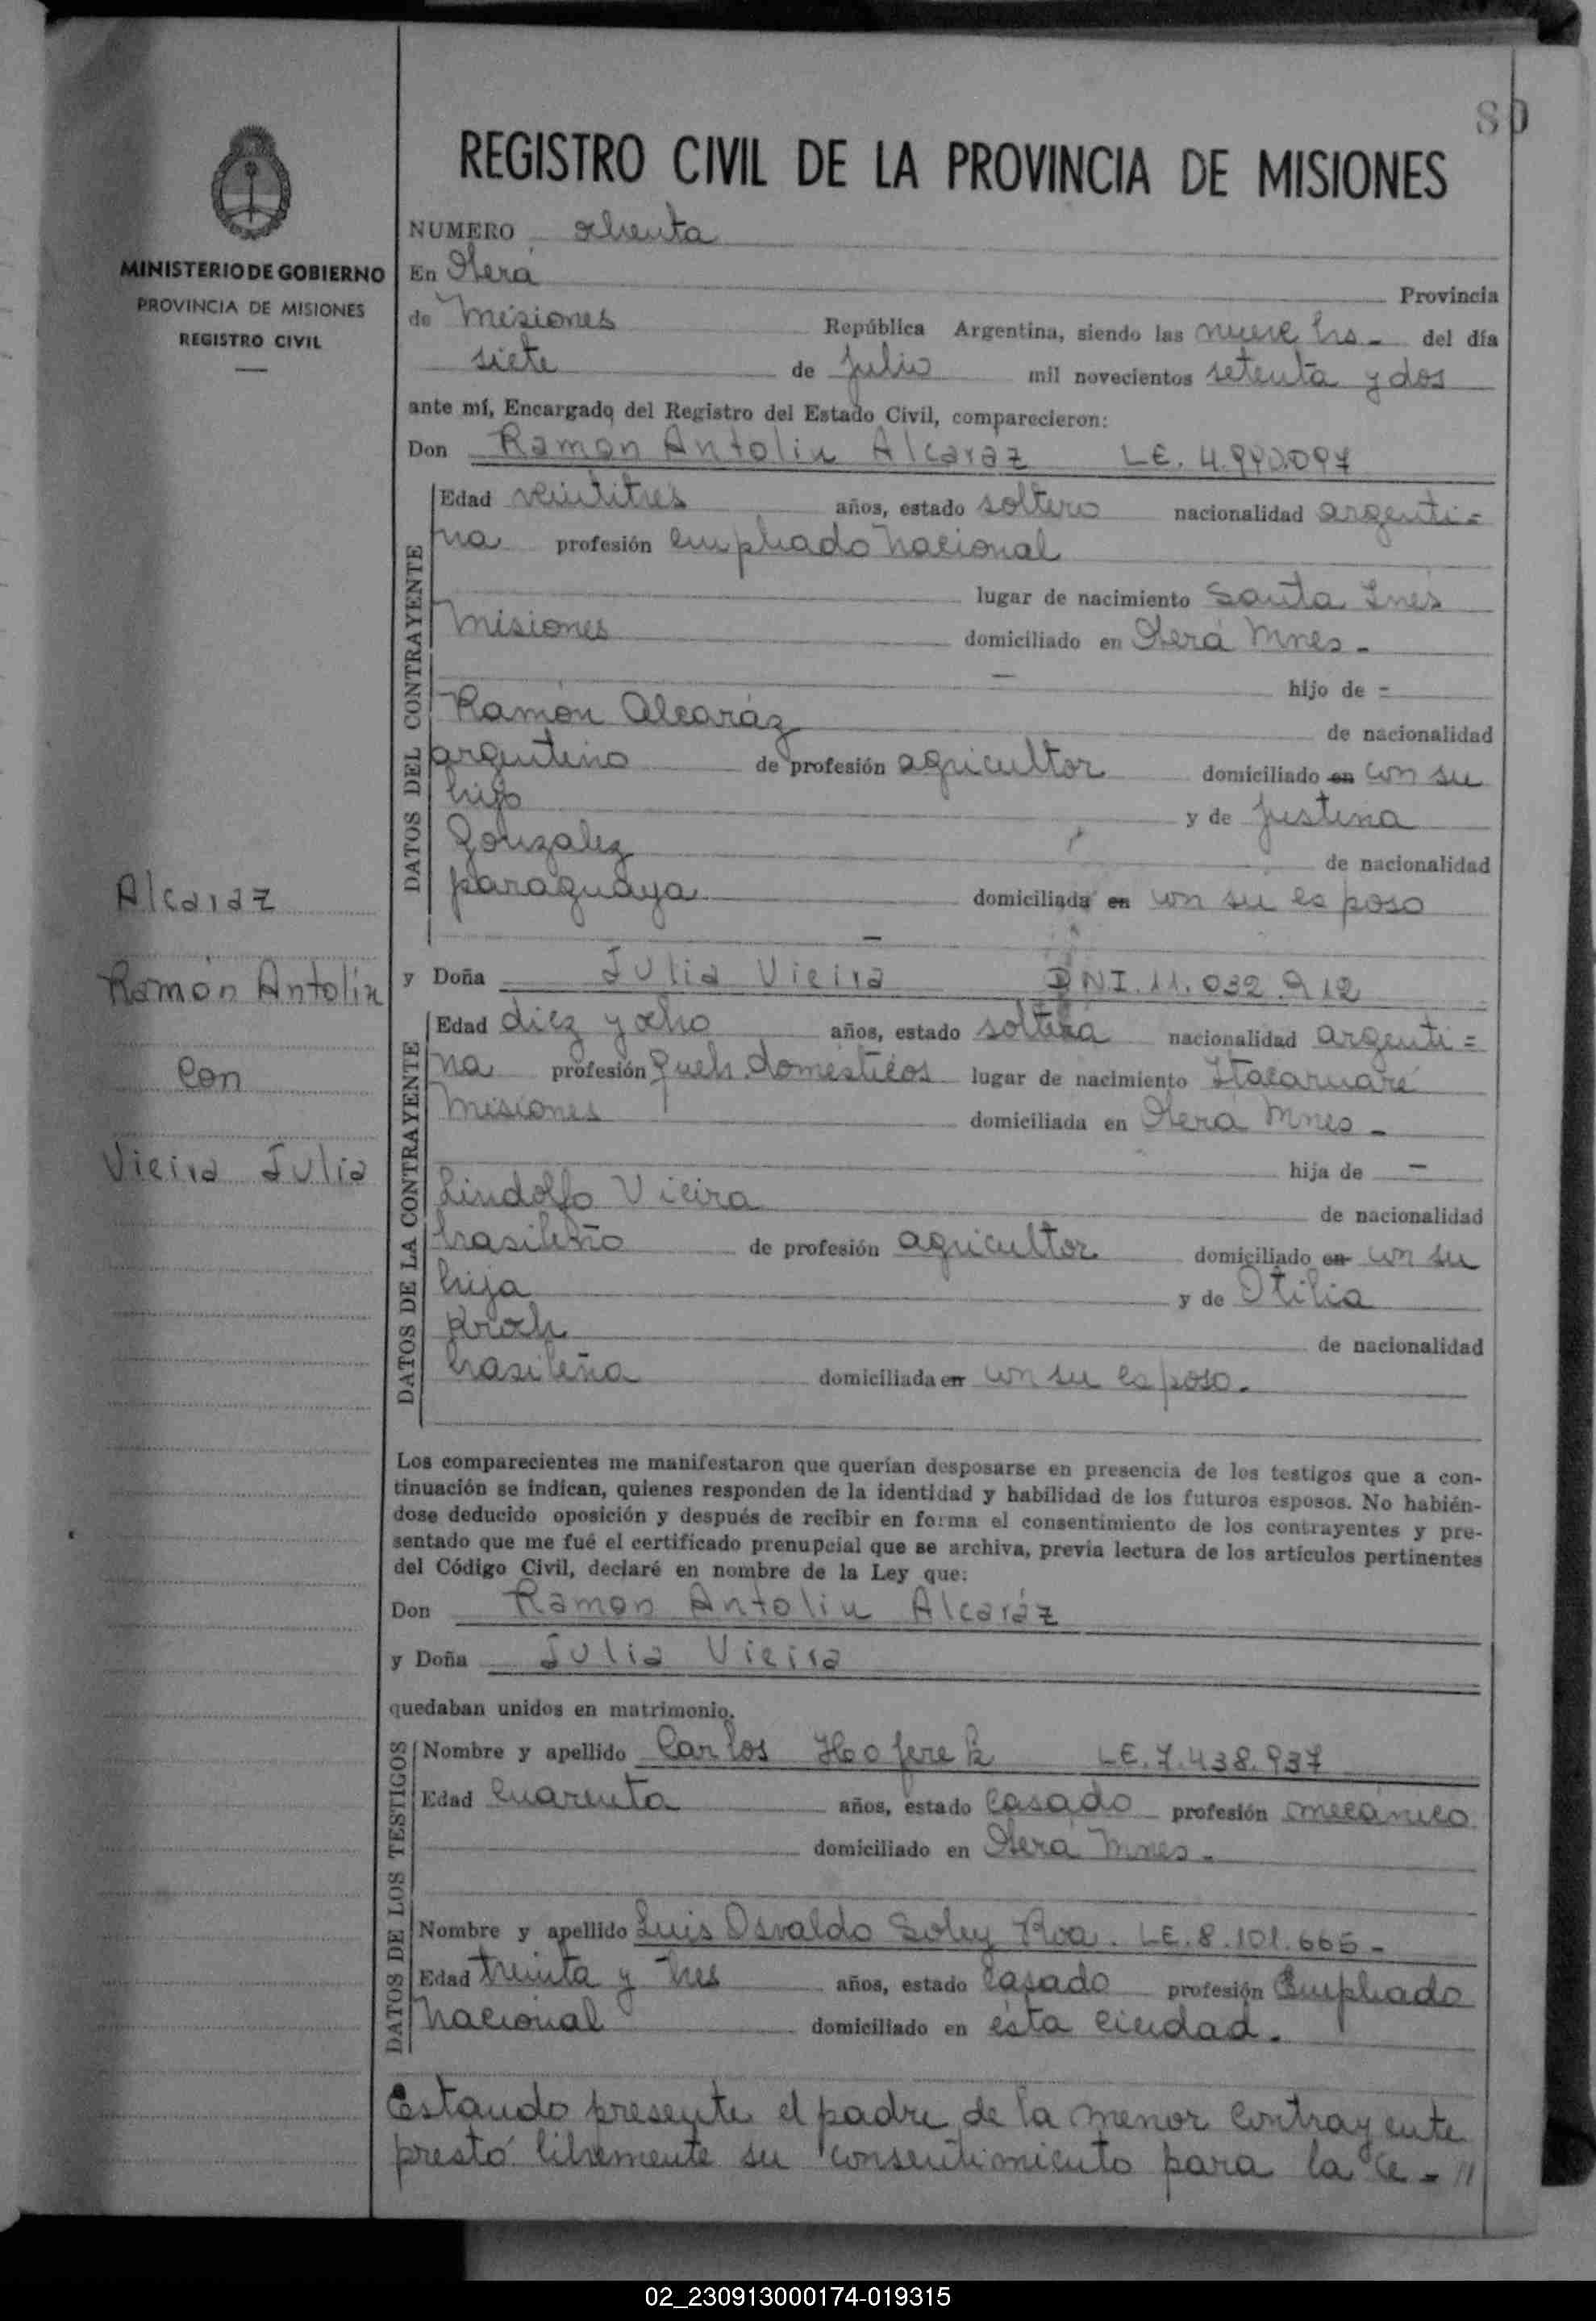 80
REGISTRO CIVIL DE LA PROVINCIA DE MISIONES
MINISTERIO DE GOBIERNO
PROVINCIA DE MISIONES
REGISTRO CIVIL
NUMERO ochenta
En Oberá Provincia
de Misiones República Argentina, siendo las nueve hs- del día
siete de Julio mil novecientos setenta y dos
ante mí, Encargado del Registro del Estado Civil, comparecieron:
Don Ramon Antolin Alcaraz LE. 4.990.097
DATOS DEL CONTRAYENTE
Edad veintitres años, estado soltero nacionalidad argenti=
na profesión empleado nacional
lugar de nacimiento Santa Inés
Misiones domiciliado en Oberá Mnes-
- hijo de =
Ramón Alcaráz de nacionalidad
argentino de profesión agricultor domiciliado en con su
hijo y de Justina
Gonzalez de nacionalidad
paraguaya domiciliada en con su esposo
-
Alcaraz
Ramón Antolin
Con
Vieira Julia
y Doña Julia Vieira DNI. 11.032.912
DATOS DE LA CONTRAYENTE
Edad diez y ocho años, estado soltera nacionalidad argenti=
na profesión Queh. domésticos lugar de nacimiento Itacaruaré
Misiones domiciliada en Oberá Mnes-
hija de -
Lindolfo Vieira de nacionalidad
brasileño de profesión agricultor domiciliado en con su
hija y de Otilia
Kroch de nacionalidad
brasileña domiciliada en con su esposo.
Los comparecientes me manifestaron que querían desposarse en presencia de los testigos que a con-
tinuación se indican, quienes responden de la identidad y habilidad de los futuros esposos. No habién-
dose deducido oposición y después de recibir en forma el consentimiento de los contrayentes y pre-
sentado que me fué el certificado prenupcial que se archiva, previa lectura de los artículos pertinentes
del Código Civil, declaré en nombre de la Ley que:
Don Ramon Antolin Alcaráz
y Doña Julia Vieira
quedaban unidos en matrimonio.
DATOS DE LOS TESTIGOS
Nombre y apellido Carlos LE. 7.438.937
Edad Cuarenta años, estado Casado profesión mecánico
domiciliado en Oberá Mnes-
Nombre y apellido Luis Osvaldo Soley Roa. LE. 8.101.665-
Edad treinta y tres años, estado Casado profesión Empleado
nacional domiciliado en ésta ciudad.
Estando presente el padre de la menor contrayente
prestó libremente su consentimiento para la ce-//
02_230913000174-019315